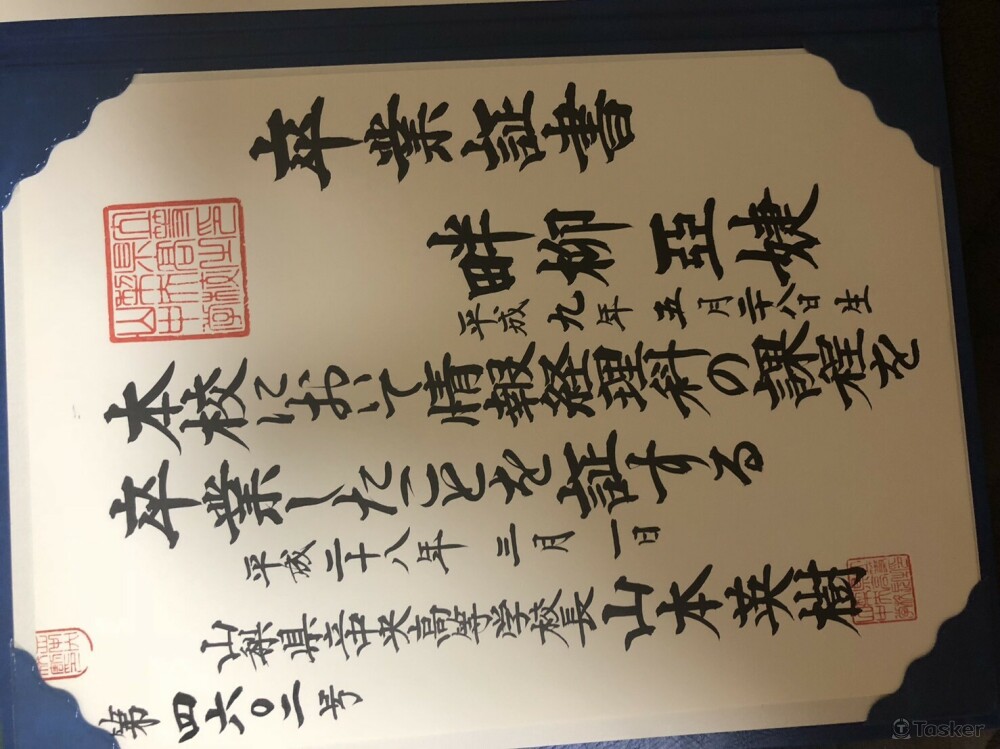 卒業証書
畔柳亞婕
平成九年五月二十八日生
本校において情報経理科の課程を
卒業したことを証する
平成二十八年三月一日
山梨県立中央高等学校長 山本英樹
第四六〇二号
Tasker